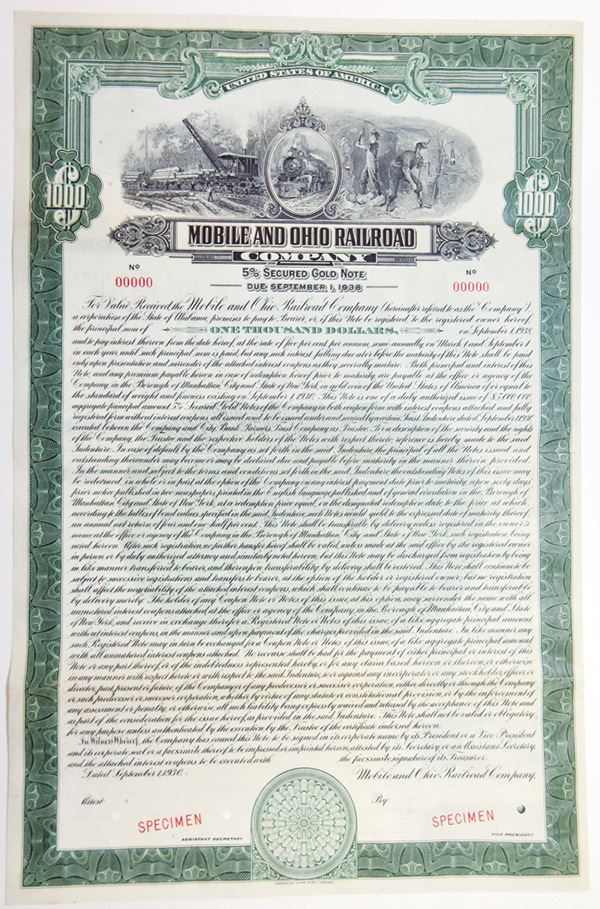 UNITED STATES OF AMERICA
$1000
$1000
MOBILE AND OHIO RAILROAD
COMPANY
5% SECURED GOLD NOTE
DUE SEPTEMBER 1, 1938
No
00000
No
00000
For Value Received, the Mobile and Ohio Railroad Company (hereinafter referred to as the "Company"),
a corporation of the State of Alabama, promises to pay to Bearer, or, if this Note be registered, to the registered owner hereof,
the principal sum of ONE THOUSAND DOLLARS, on September 1, 1938
and to pay interest thereon from the date hereof, at the rate of five per cent per annum, semi-annually on March 1 and September 1
in each year, until such principal sum is paid, but any such interest falling due at or before the maturity of this Note shall be paid
only upon presentation and surrender of the attached interest coupons as they severally mature. Both principal and interest of this
Note, and any premium payable hereon in case of redemption hereof prior to maturity are payable at the office or agency of the
Company, in the Borough of Manhattan, City and State of New York, in gold coin of the United States of America of or equal to
the standard of weight and fineness existing on September 1, 1930. This Note is one of a duly authorized issue of $5,000,000
aggregate principal amount 5% Secured Gold Notes of the Company in both coupon form with interest coupons attached and fully
registered form without coupons, all issued and to be issued under and
executed between the Company and City Bank Farmers Trust Company as Trustee. For a description of the security and the rights
of the Company, the Trustee and the respective holders of the Notes with respect thereto reference is hereby made to the said
Indenture. In case of default by the Company as set forth in the said Indenture, the principal of all the Notes issued and
outstanding thereunder may become or may be declared due and payable before maturity in the manner therein provided.
In the manner and subject to the terms and conditions set forth in the said Indenture the outstanding Notes of this issue may
be redeemed, in whole or in part at the option of the Company on any interest payment date prior to maturity, upon sixty days
prior notice published in two newspapers, printed in the English language published and of general circulation in the Borough of
Manhattan, City and State of New York, at a redemption price equal on the designated redemption date to the price at which,
according to the tables of bond values specified in the said Indenture, such Note would yield to the expressed date of maturity thereof,
an annual net return of four and one-half per cent. This Note shall be transferable by delivery unless registered in the owner's
name at the office or agency of the Company in the Borough of Manhattan, City and State of New York, such registration being
noted hereon. After such registration, no further transfer hereof shall be valid, unless made at the said office by the registered owner
in person or by duly authorized attorney and similarly noted hereon, but this Note may be discharged from registration by being
in like manner transferred to bearer, and thereupon transferability by delivery shall be restored. This Note shall continue to be
subject to successive registrations and transfers to bearer, at the option of the holder or registered owner, but no registration
shall affect the negotiability of the attached interest coupons, which shall continue to be payable to bearer and transferable
by delivery merely. The holder of any Coupon Note or Notes of this issue, at his option, may surrender the same with all
unmatured interest coupons attached, at the office or agency of the Company, in the Borough of Manhattan, City and State
of New York, and receive in exchange therefor a Registered Note or Notes of this issue, of a like aggregate principal amount
without interest coupons, in the manner and upon payment of the charges provided in the said Indenture. In like manner any
such Registered Note may in turn be exchanged for a Coupon Note or Notes of this issue, of a like aggregate principal amount
with all unmatured interest coupons attached. No recourse shall be had for the payment of either principal or interest of this
Note or any part thereof, or of the indebtedness represented hereby, or for any claim based hereon or thereon, or otherwise
in any manner with respect hereto or with respect to the said Indenture, to or against any incorporator or any stockholder, officer or
director, past, present or future, of the Company or of any predecessor or successor corporation, either directly or through the Company
or such predecessor or successor corporation, whether by virtue of any statute or constitutional provision, or by the enforcement
of any assessment or penalty, or otherwise, all such liability being expressly waived and released by the acceptance of this Note and
as part of the consideration for the issue hereof, as provided in the said Indenture. This Note shall not be valid or obligatory,
for any purpose unless authenticated by the execution by the Trustee of the certificate endorsed hereon.
In Witness Whereof, the Company has caused this Note to be signed in its corporate name by its President or a Vice President
and its corporate seal or a facsimile thereof to be impressed or imprinted hereon, attested by its Secretary or an Assistant Secretary,
and the attached interest coupons to be executed with the facsimile signature of its Treasurer.
Dated September 1, 1930.
Mobile and Ohio Railroad Company,
Attest:
By
SPECIMEN
SPECIMEN
ASSISTANT SECRETARY
VICE PRESIDENT
AMERICAN BANK NOTE COMPANY